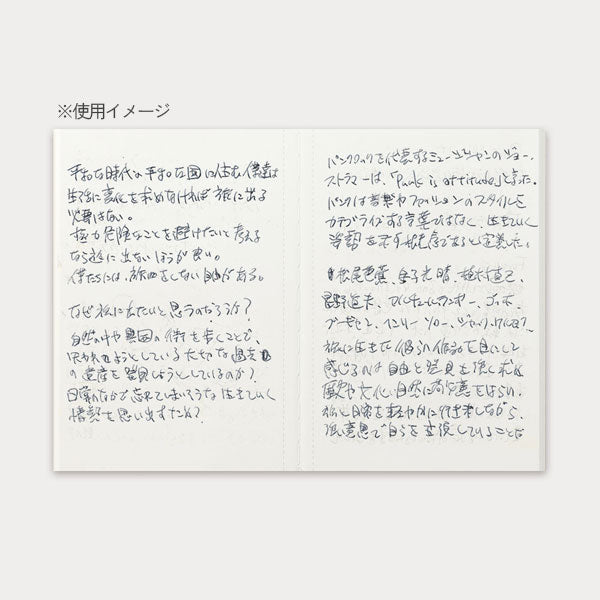 ※使用イメージ
平和な時代の平和な国に住む僕達は
生活に変化を求めなければ旅に出る
必要はない。
極力危険なことを避けたいと考える
なら旅に出ないほうが良い。
僕たちには、旅をしない自由がある。
なぜ旅に出たいと思うのだろうか?
自然の中や異国の街を歩くことで、
失われようとしている大切な過去
の遺産を発見しようとしているのか?
日常のなかで忘れてしまいそうな生きていく
情熱を思い出すため?
パンクロックを代表するミュージシャンのジョー・
ストラマーは、「Punk is attitude」と言った。
パンクは音楽やファッションのスタイルを
カテゴライズする言葉ではなく、生きていく
姿勢を示す姿勢であると定義した。
松尾芭蕉、金子光晴、植村直己、
星野道夫、ゴッホ、
ヘンリー・ソロー、ジャック
旅に生きた彼らの作品を目にして
感じるのは自由と発見を強く求め
歴史や文化、自然に敬意をはらい、
旅と日常を軽やかに行き来しながら、
強い意思で自らを表現していることだ